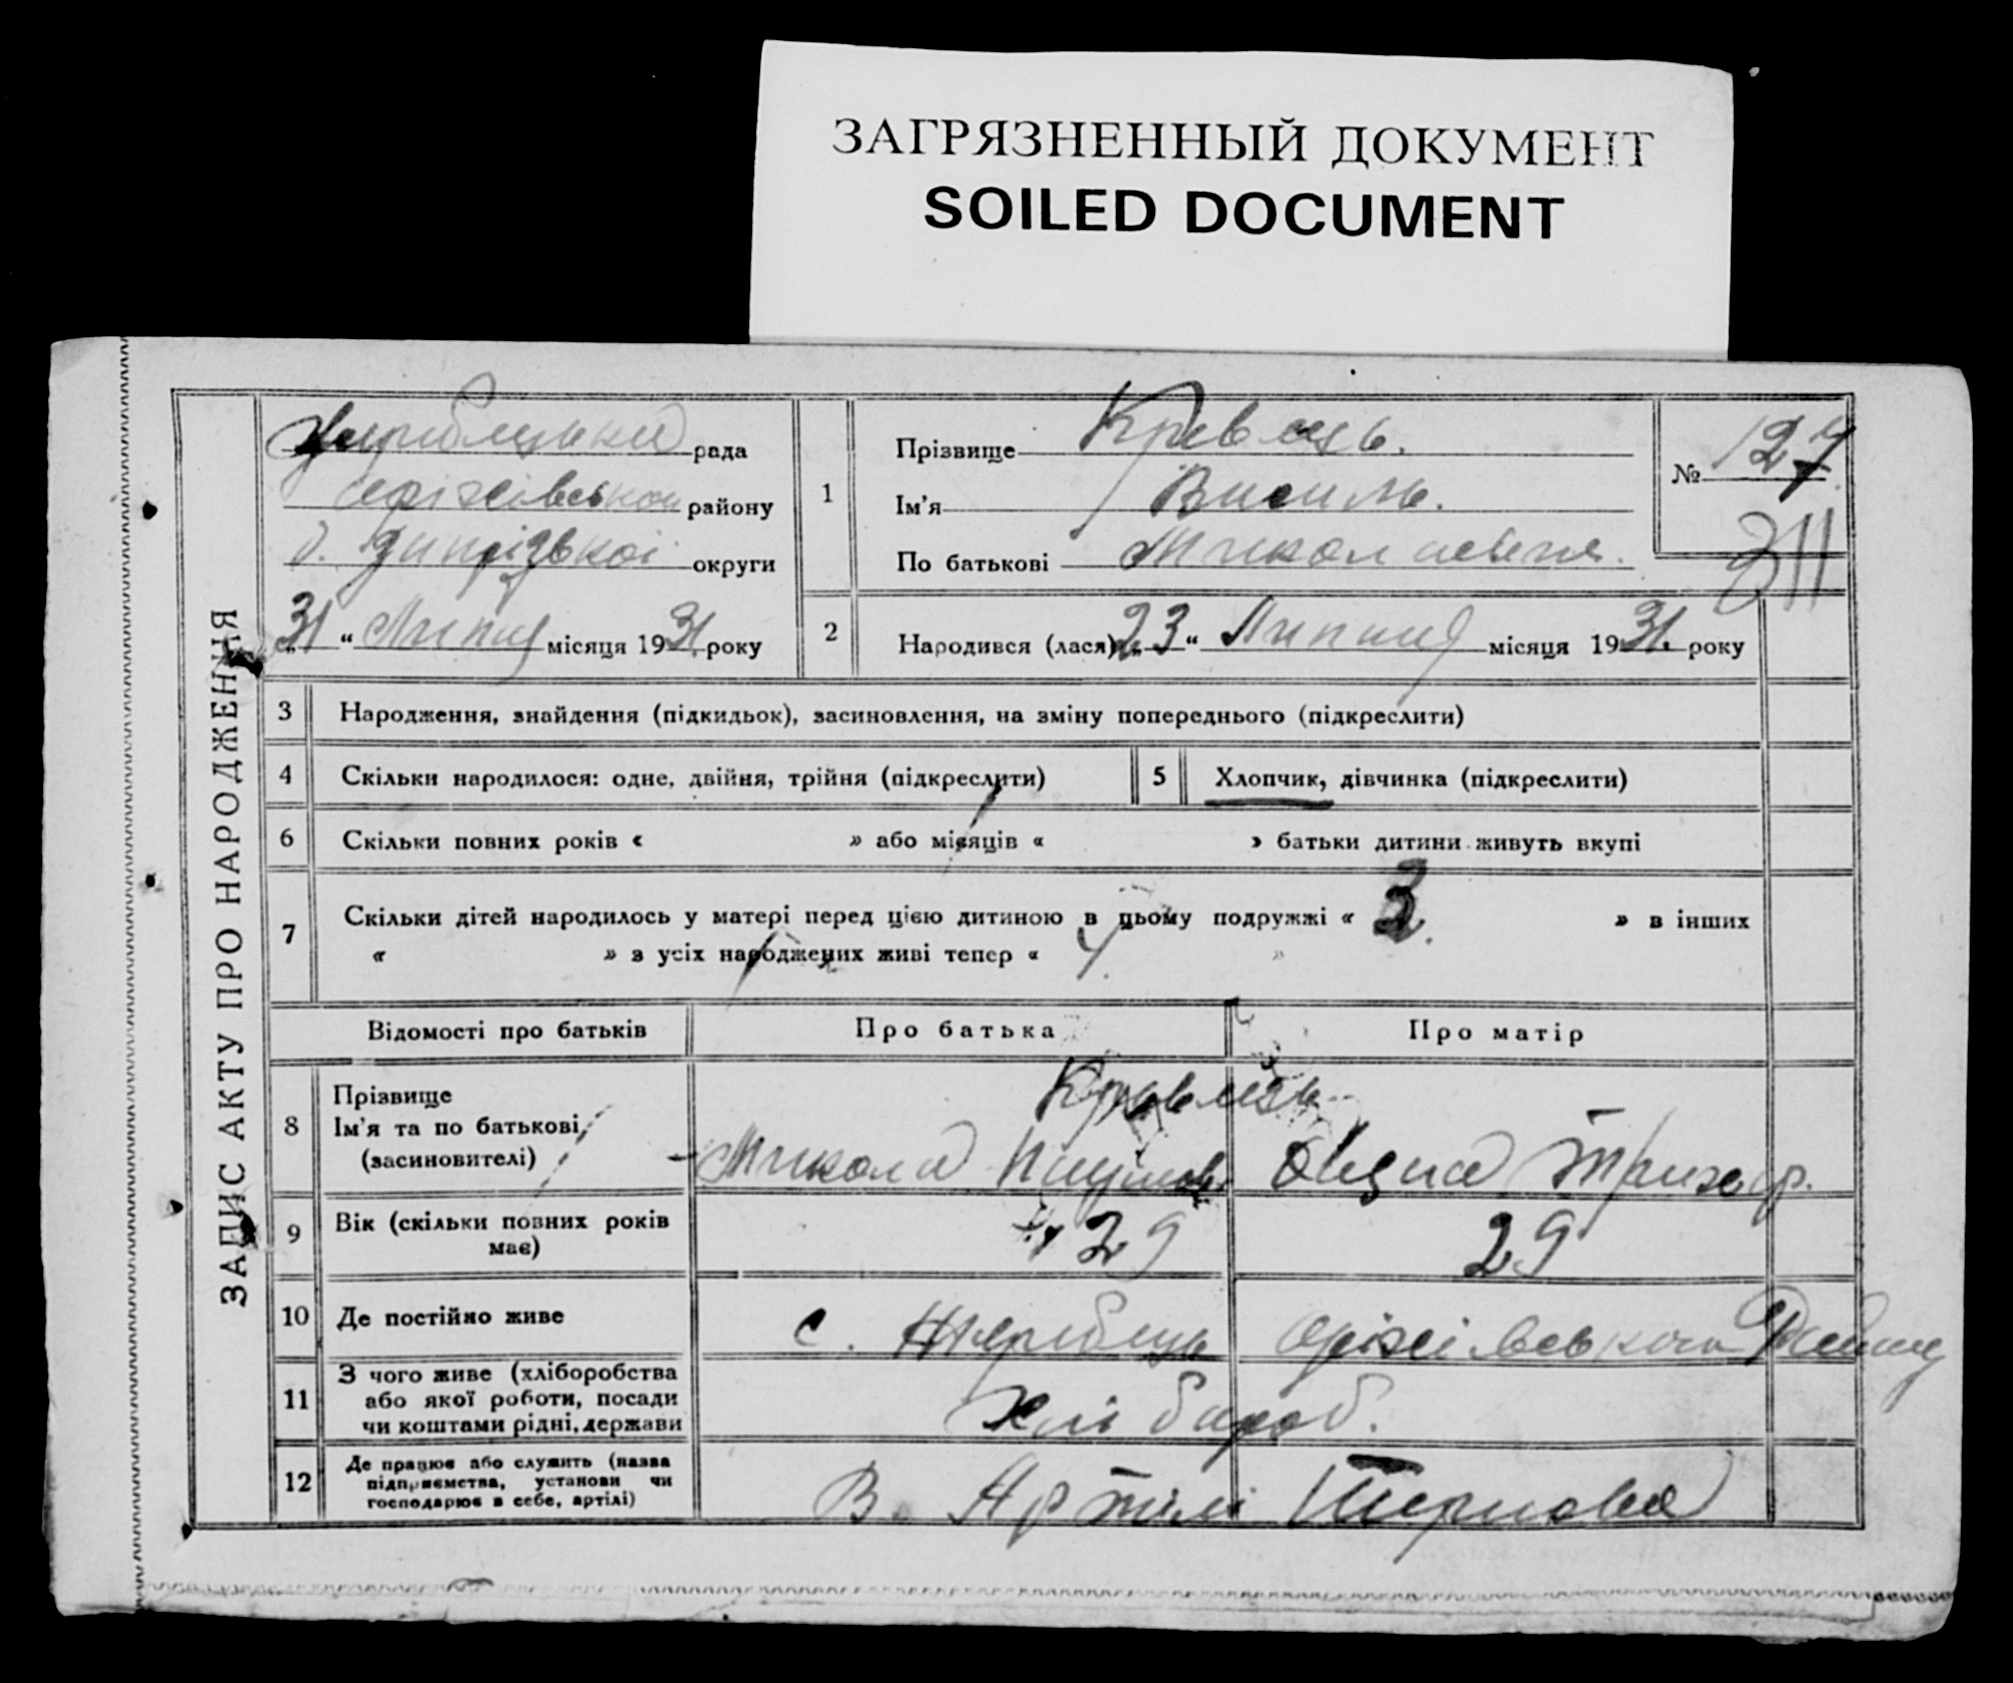 ЗАГРЯЗНЕННЫЙ ДОКУМЕНТ
SOILED DOCUMENT
ЗАПИС АКТУ ПРО НАРОДЖЕННЯ
рада
району
округи
„31“ Липня місяця 1931 року
1
Прізвище Кравець.
Ім'я Василь.
По батькові
№ 127
311
2 Народився (лася) „23“ Липня місяця 1931 року
3 Народження, знайдення (підкидьок), засиновлення, на зміну попереднього (підкреслити)
4 Скільки народилося: одне, двійня, трійня (підкреслити)
5 Хлопчик, дівчинка (підкреслити)
6 Скільки повних років « » або місяців « » батьки дитини живуть вкупі
7 Скільки дітей народилось у матері перед цією дитиною в цьому подружжі « 3. » в інших
« » з усіх народжених живі тепер « »
Відомості про батьків Про батька Про матір
8 Прізвище
Ім'я та по батькові
(засиновителі)
Кравець
Микола Наумов.
9 Вік (скільки повних років
має)
29 29
10 Де постійно живе с. Жеребець Оріхівського Району
11 З чого живе (хліборобства
або якої роботи, посади
чи коштами рідні, держави
Хлібороб.
12 Де працює або служить (назва
підприємства, установи чи
господарює в себе, артілі)
В Артілі